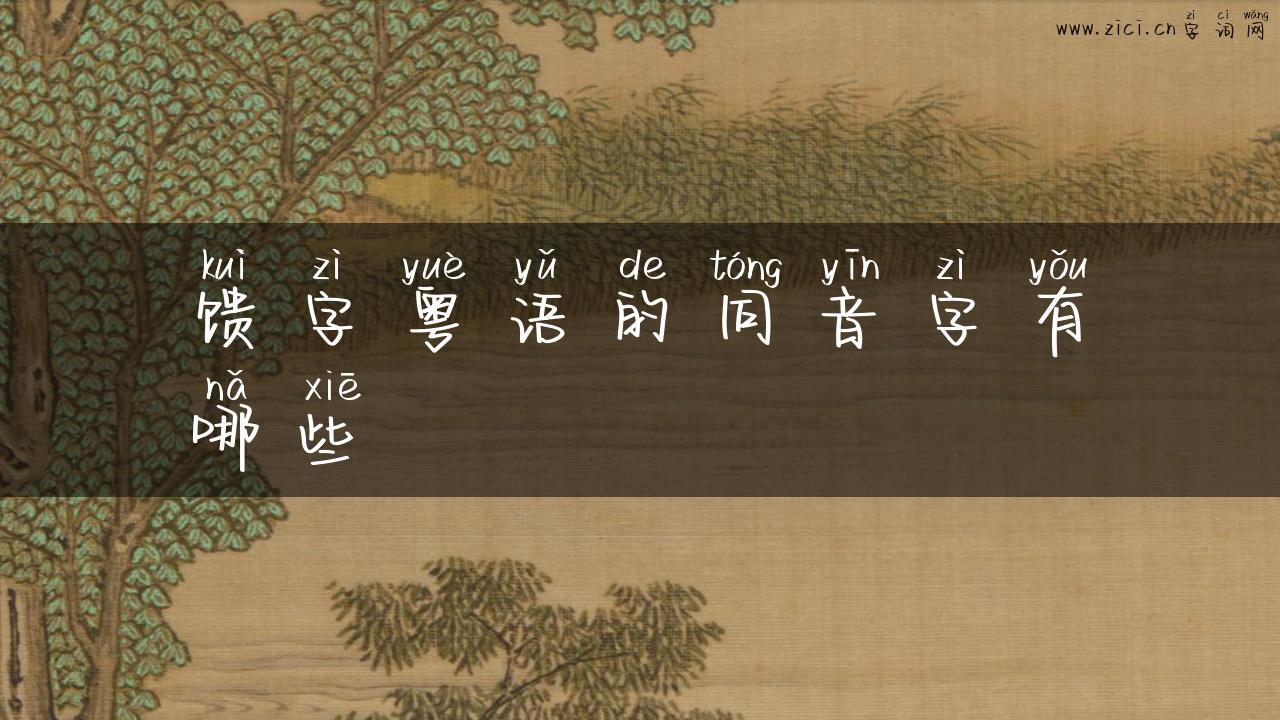 zì cí wǎng
www.zici.cn 字词网
kuì zì yuè yǔ de tóng yīn zì yǒu
馈字粤语的同音字有
nǎ xiē
哪些